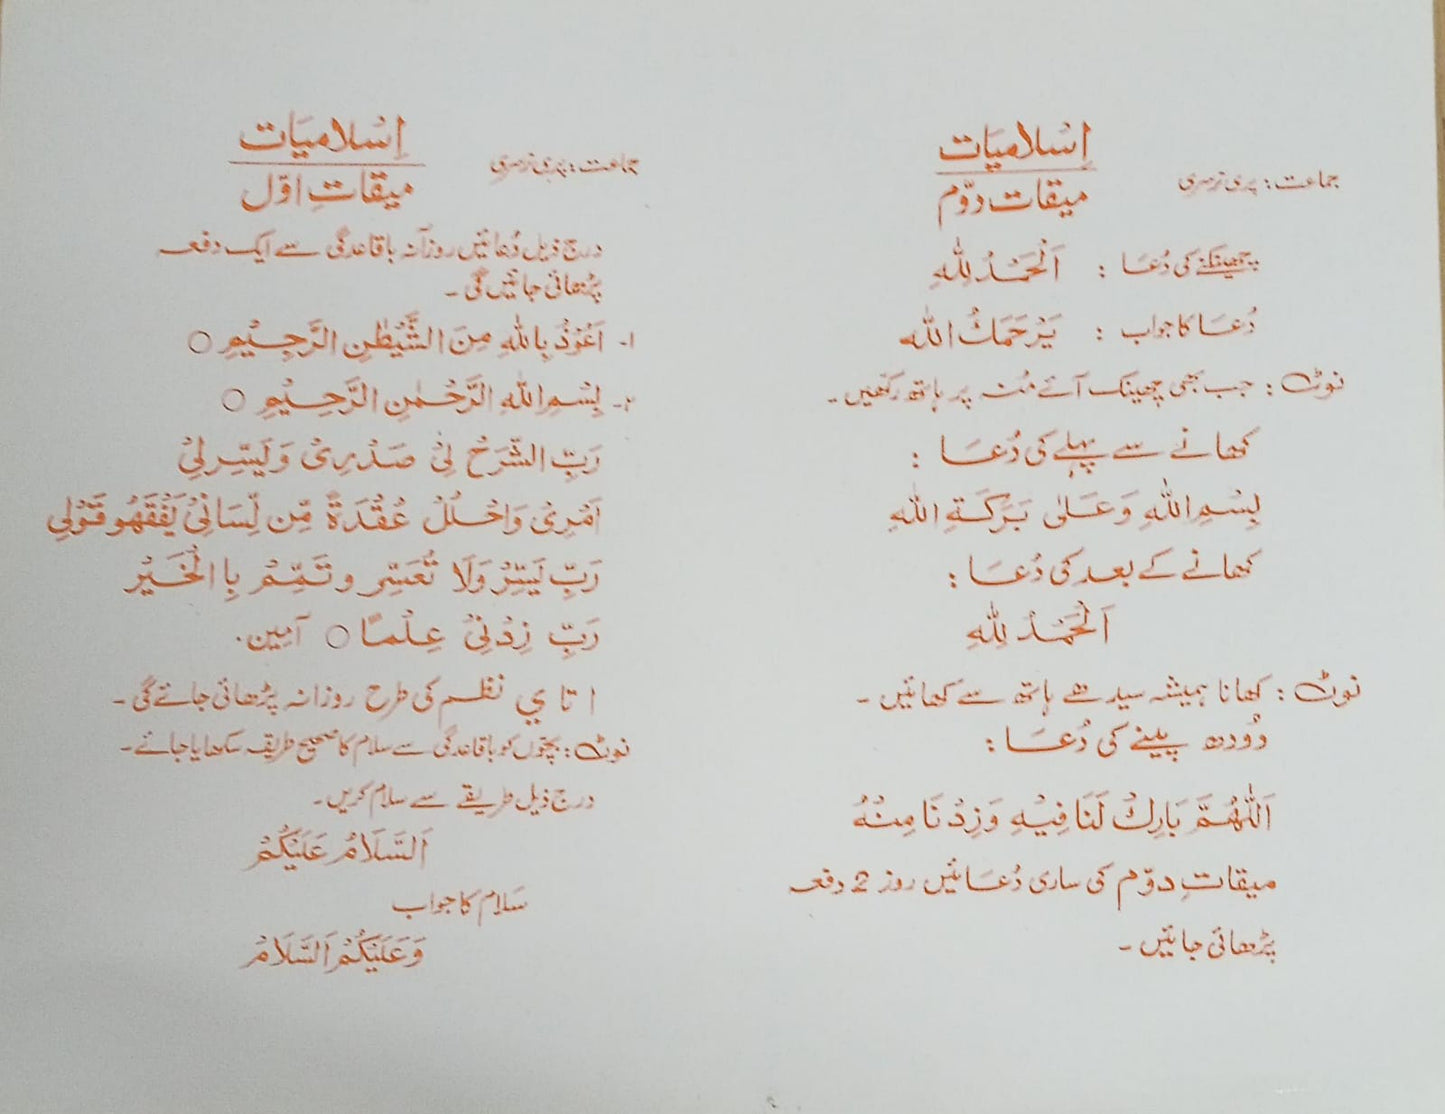 اِسْلامیَات
جماعت : پری نرسری
میقاتِ دوّم
چھینکنے کی دُعَا : اَلْحَمْدُ لِلّٰہِ
دُعَا کا جواب : یَرْحَمَکُ اللّٰہ
نوٹ : جب بھی چھینک آئے مُنہ پر ہاتھ رکھیں۔
کھانے سے پہلے کی دُعَا :
بِسْمِ اللّٰہِ وَعَلٰی بَرَکَۃِ اللّٰہِ
کھانے کے بعد کی دُعَا :
اَلْحَمْدُ لِلّٰہِ
نوٹ : کھانا ہمیشہ سیدھے ہاتھ سے کھائیں۔
دُودھ پینے کی دُعَا :
اَللّٰھُمَّ بَارِکْ لَنَا فِیْہِ وَزِدْنَا مِنْہُ
میقاتِ دوّم کی ساری دُعَائیں روز 2 دفعہ
پڑھائی جائیں۔
اِسْلامیَات
جماعت : پری نرسری
میقاتِ اوّل
درج ذیل دُعائیں روزآنہ باقاعدگی سے ایک دفعہ
پڑھائی جائیں گی۔
۱۔ اَعُوْذُ بِاللّٰہِ مِنَ الشَّیْطٰنِ الرَّجِیْمِ ○
۲۔ بِسْمِ اللّٰہِ الرَّحْمٰنِ الرَّحِیْمِ ○
رَبِّ الشْرَحْ لِیْ صَدْرِیْ وَیَسِّرلِیْ
اَمْرِیْ وَاحْلُلْ عُقْدَۃً مِّن لِّسَانِیْ یَفْقَھُو قَوْلِی
رَبِّ یَسِّرْ وَلَا تُعَسِّر و تَمِّمْ بِا الْخَیْر
رَبِّ زِدْنِیْ عِلْمًا ○ آمِین۔
ا تا ي نظم کی طرح روزانہ پڑھائی جائے گی۔
نوٹ : بچّوں کو باقاعدگی سے سلام کا صحیح طریقہ سکھایا جائے۔
درج ذیل طریقے سے سلام کریں۔
اَلسَّلَامُ عَلَیْکُمْ
سَلام کا جواب
وَعَلَیْکُمْ اَلسَّلَامْ